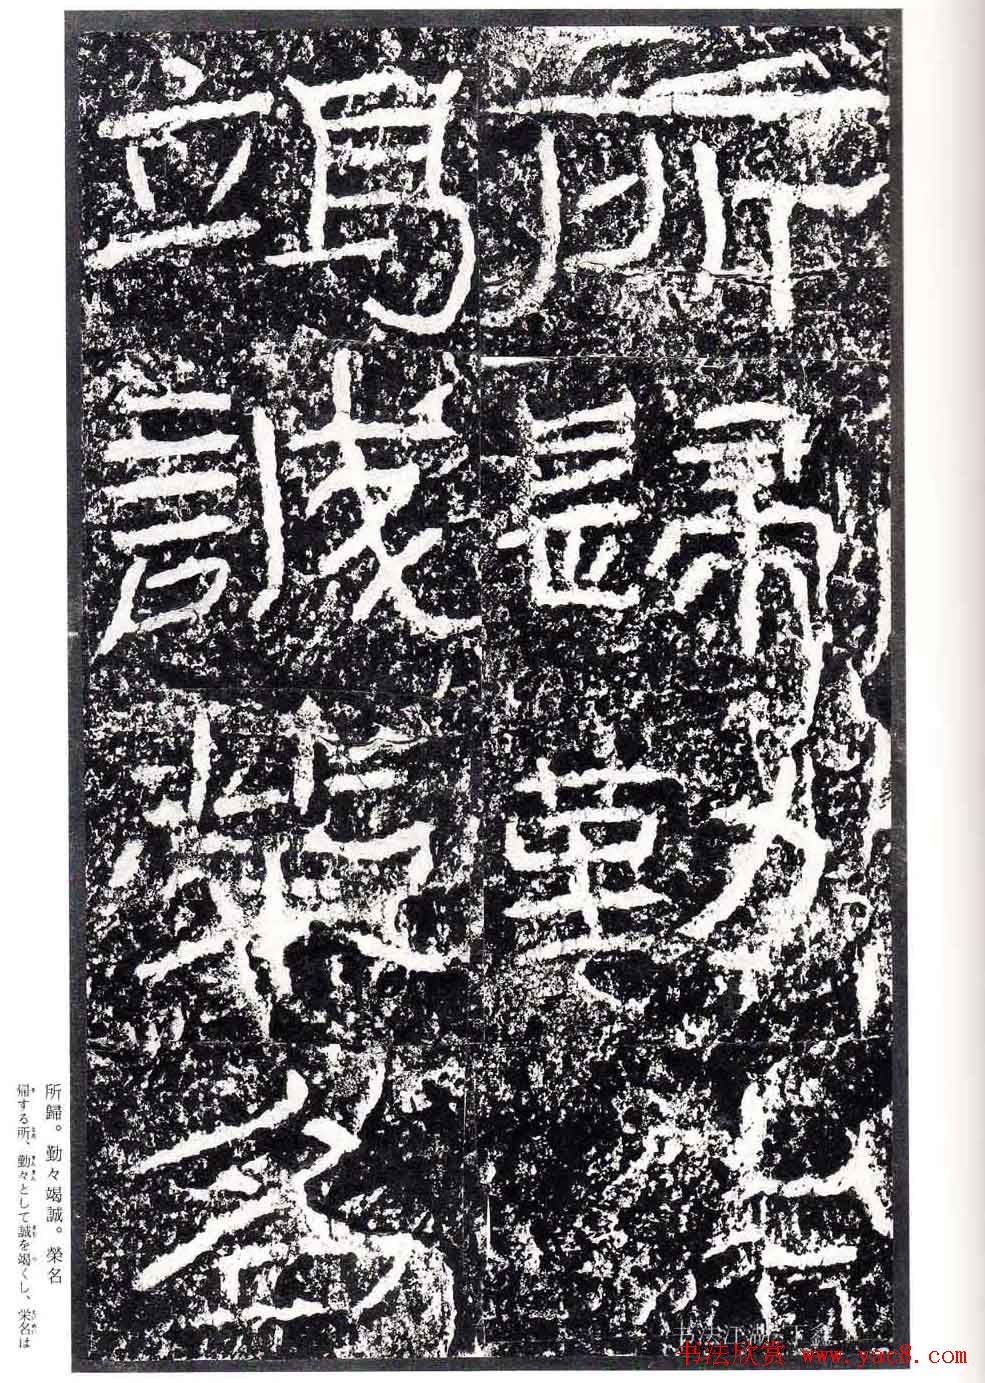 所歸勤
竭誠榮名
所歸。勤々竭誠。榮名
帰する所、勤々として誠を竭くし、栄名は
书法欣赏 www.yac8.com